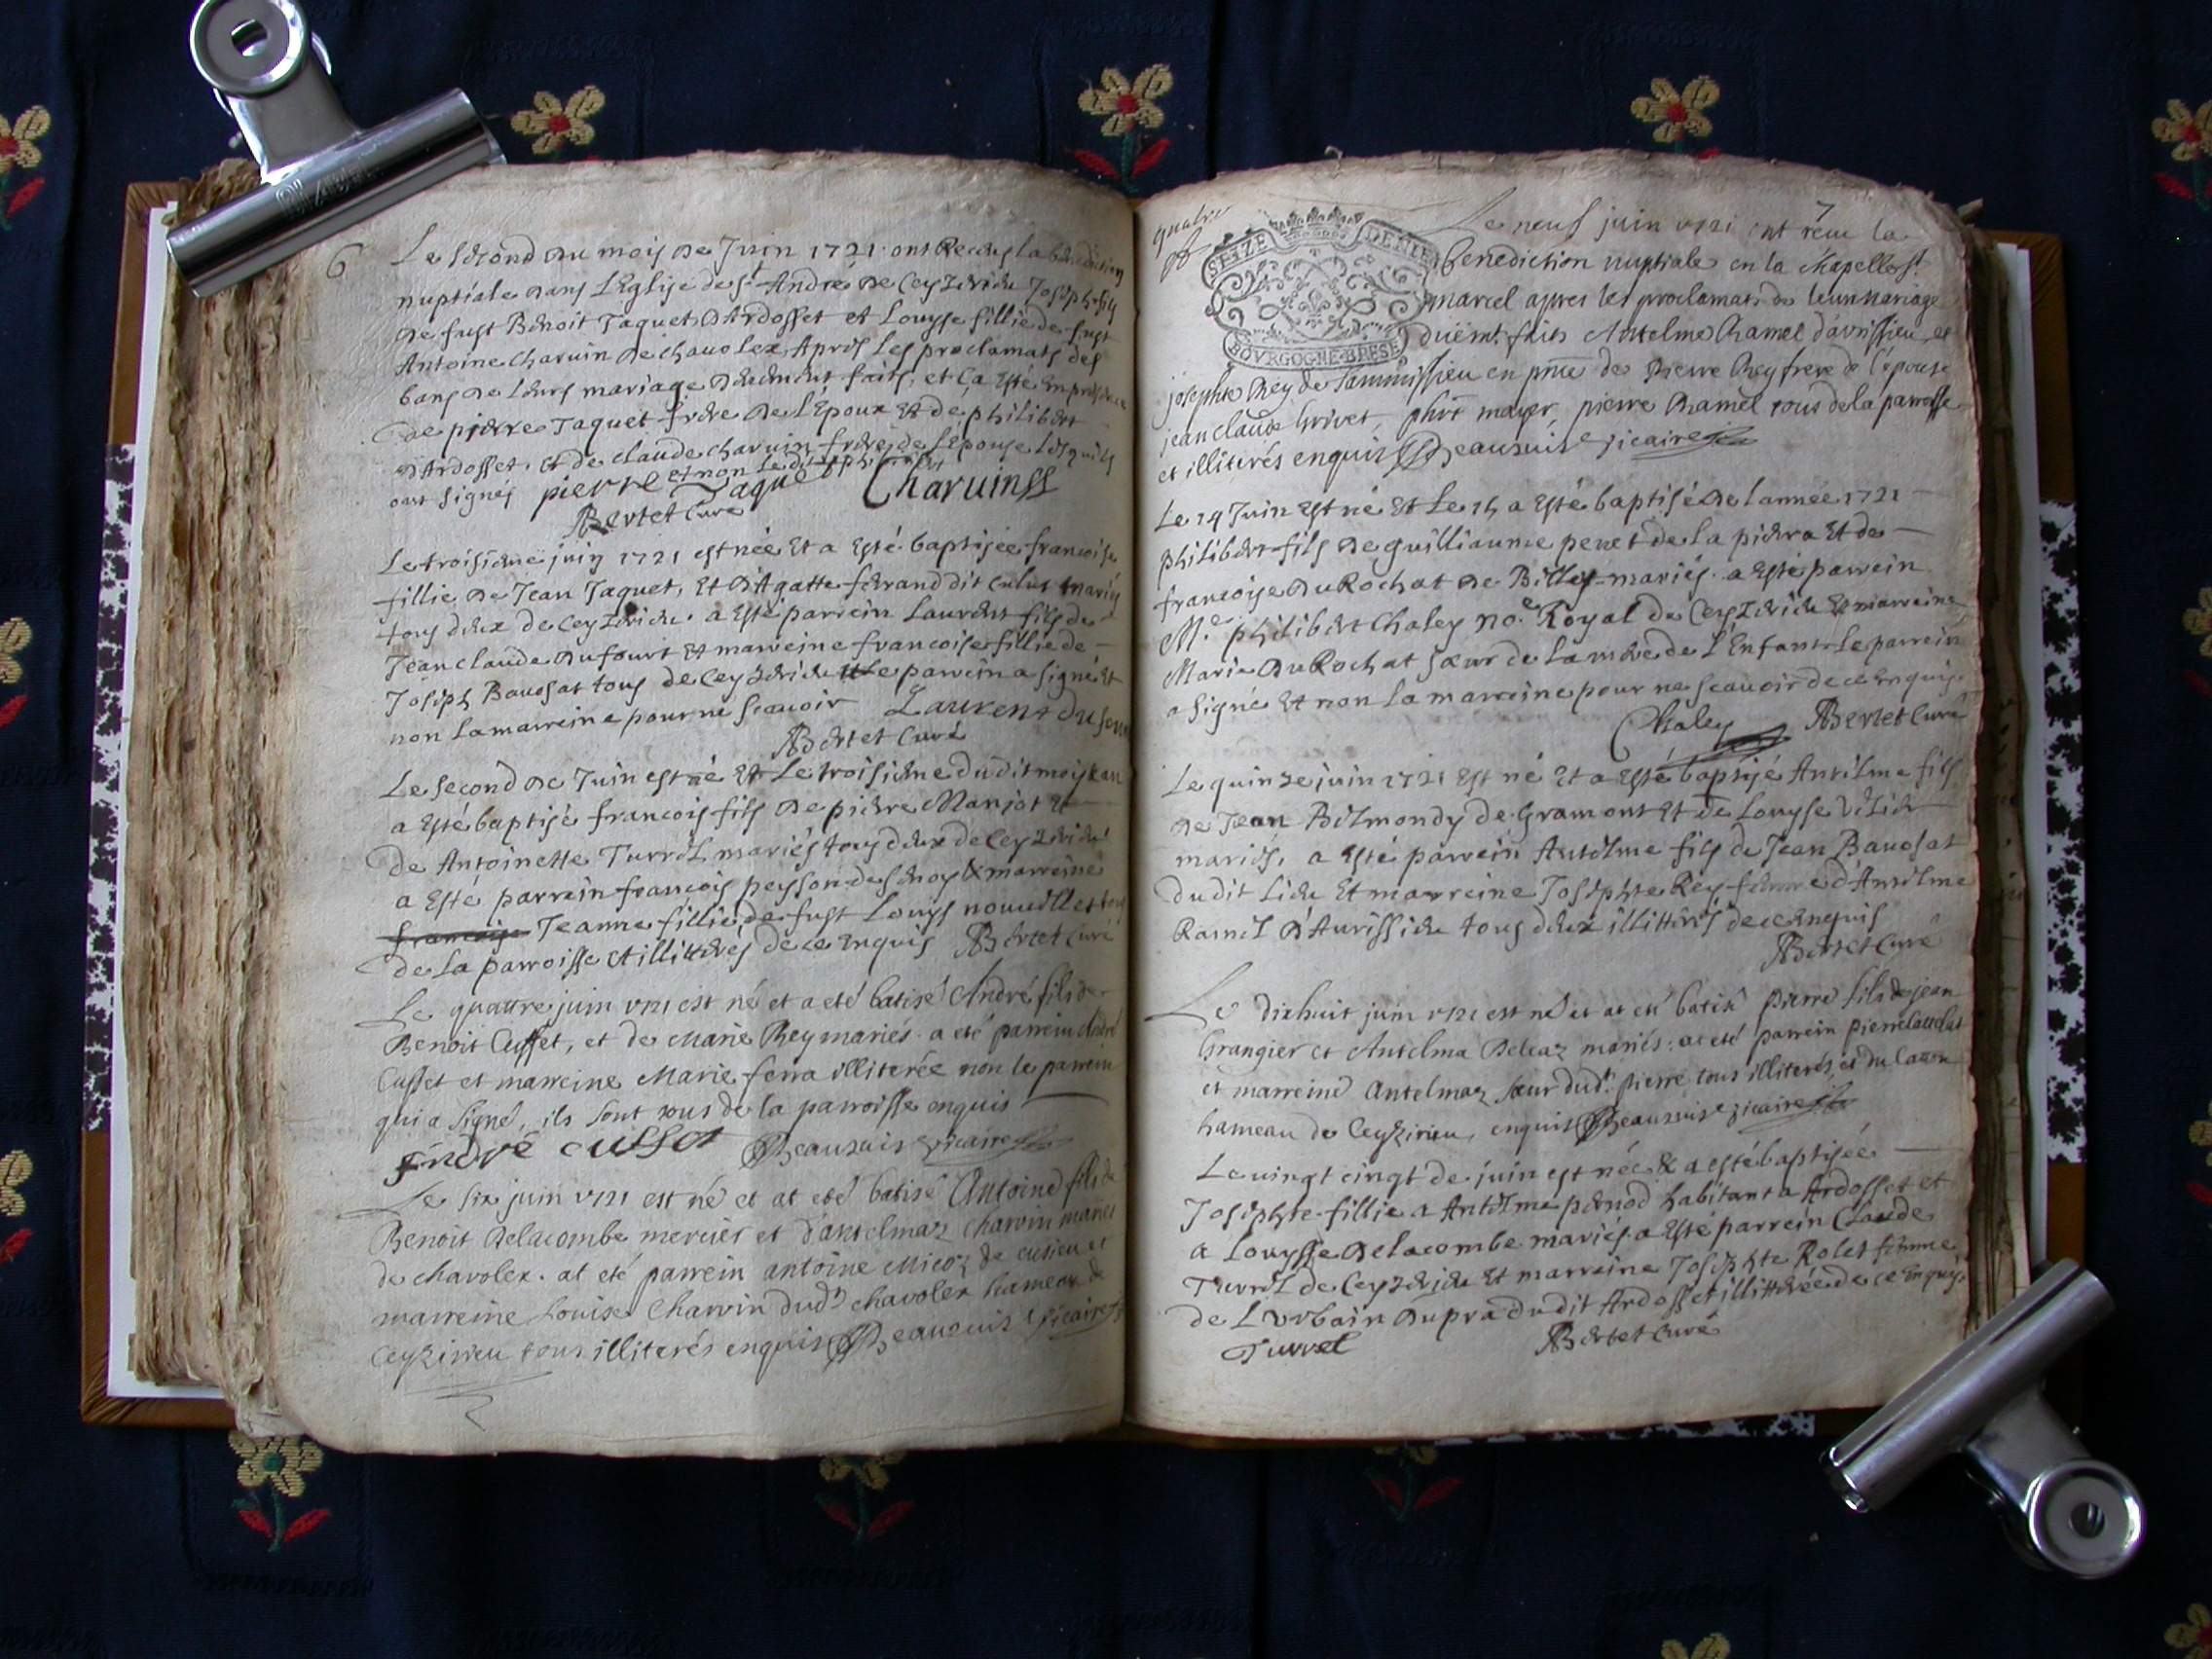 6
Le second du mois de Juin 1721 ont Receus la benediction
nuptiale dans L'Eglise de st André de Ceyzerieu Joseph fils
de fust Benoit Jaquet d'Ardosset et Louyse fillie de fust
Antoine Charvin de chavolex, Apres les proclamats des
bans de leurs mariage deuement faits, et ça esté en presence
de pierre Jaquet frere de l'Epoux et de philibert
d'Ardosset, et de claude charvin frere de l'epouse lesquels
ont signés et non le dit philibert
pierre Jaquet Charvinss
Bertet Curé
Le troisieme juin 1721 est née et a esté baptisée francoise
fillie de Jean Jaquet, et d'Agatte ferrand dit mariés
tous deux de Ceyzerieu. a esté parrein Laurent fils de
Jean claude dufourt et marreine francoise fillie de
Joseph Bavosat tous de Ceyzerieu le parrein a signé et
non la marreine pour ne scavoir Laurent dufour
Bertet Curé
Le second de Juin est né et Le troisieme du dit mois et an
a esté baptisé francois fils de pierre Manjot et
de Antoinette Turrel mariés tous deux de Ceyzerieu
a esté parrein francois peysson & marreine
francoise Jeanne fillie de fust Louys tous
de la parroisse et illitterés de ce enquis Bertet Curé
Le quattre juin 1721 est né et a eté batisé André fils de
Benoit Cusset, et de Marie Rey mariés. a eté parrein André
Cusset et marreine Marie ferra illiterée non le parrein
qui a signé, ils sont tous de la parroisse enquis
André cusset Beauvais vicaire
Le six juin 1721 est né et at eté batisé Antoine fils de
Benoit Delacombe mercier et d'antelmaz charvin mariés
de chavolex. at eté parrein antoine Micoz de cusieu et
marreine Louise Charvin dudt chavolex hameau de
Ceyzirieu tous illiterés enquis Beauvais vicaire
quatre
7
SEIZE DENIE
BOVRGOGNE-BRESE
Le neuf juin 1721 ont reçu la
benediction nuptiale en la chapelle st
marcel apres les proclamats de leur mariage
duëmt faits Antelme Ramel d'avrissieu et
josephte Rey de Sammissieu en pnce de Pierre Rey frere de l'epouse
jean claude Grivet, phirt mayer, pierre Ramel tous de la parroisse
et illiterés enquis Beauvais vicaire
Le 14 Juin est né et Le 15 a esté baptisé de l'année 1721
philibert fils de guilliaume penet de la pierra et de
francoise du Rochat de Billey mariés. a esté parrein
Me philibert Chaley noe Royal de Ceyzerieu et marreine
Marie du Rochat sœur de la mere de l'Enfant. le parrein
a signé et non la marreine pour ne scavoir de ce enquis.
Chaley Bertet Curé
Le quinze juin 1721 est né et a esté baptisé Antelme fils
de Jean Belmondy de Gramont et de Louyse
mariés, a esté parrein Antelme fils de Jean Bavosat
du dit Lieu et marreine Josephte Rey femme d'Antelme
Ramel d'Avrissieu tous deux illitterés de ce enquis
Bertet Curé
Le dixhuit juin 1721 est né et at eté batisé pierre fils de jean
Grangier et Antelma Deleaz mariés: at eté parrein pierre
et marreine Antelmaz sœur dudt pierre tous illiterés, et du
hameau de Ceyzirieu, enquis Beauvais vicaire
Le vingt cinqt de juin est née & a esté baptisée
Josephte fillie a Antelme pernod habitant a Ardosset et
a Louysse Delacombe mariés a esté parrein Claude
Turrel de Ceyzerieu et marreine Josephte Rolet femme
de L'Urbain Dupra du dit Ardosset illitterée de ce enquis
Turrel Bertet Curé